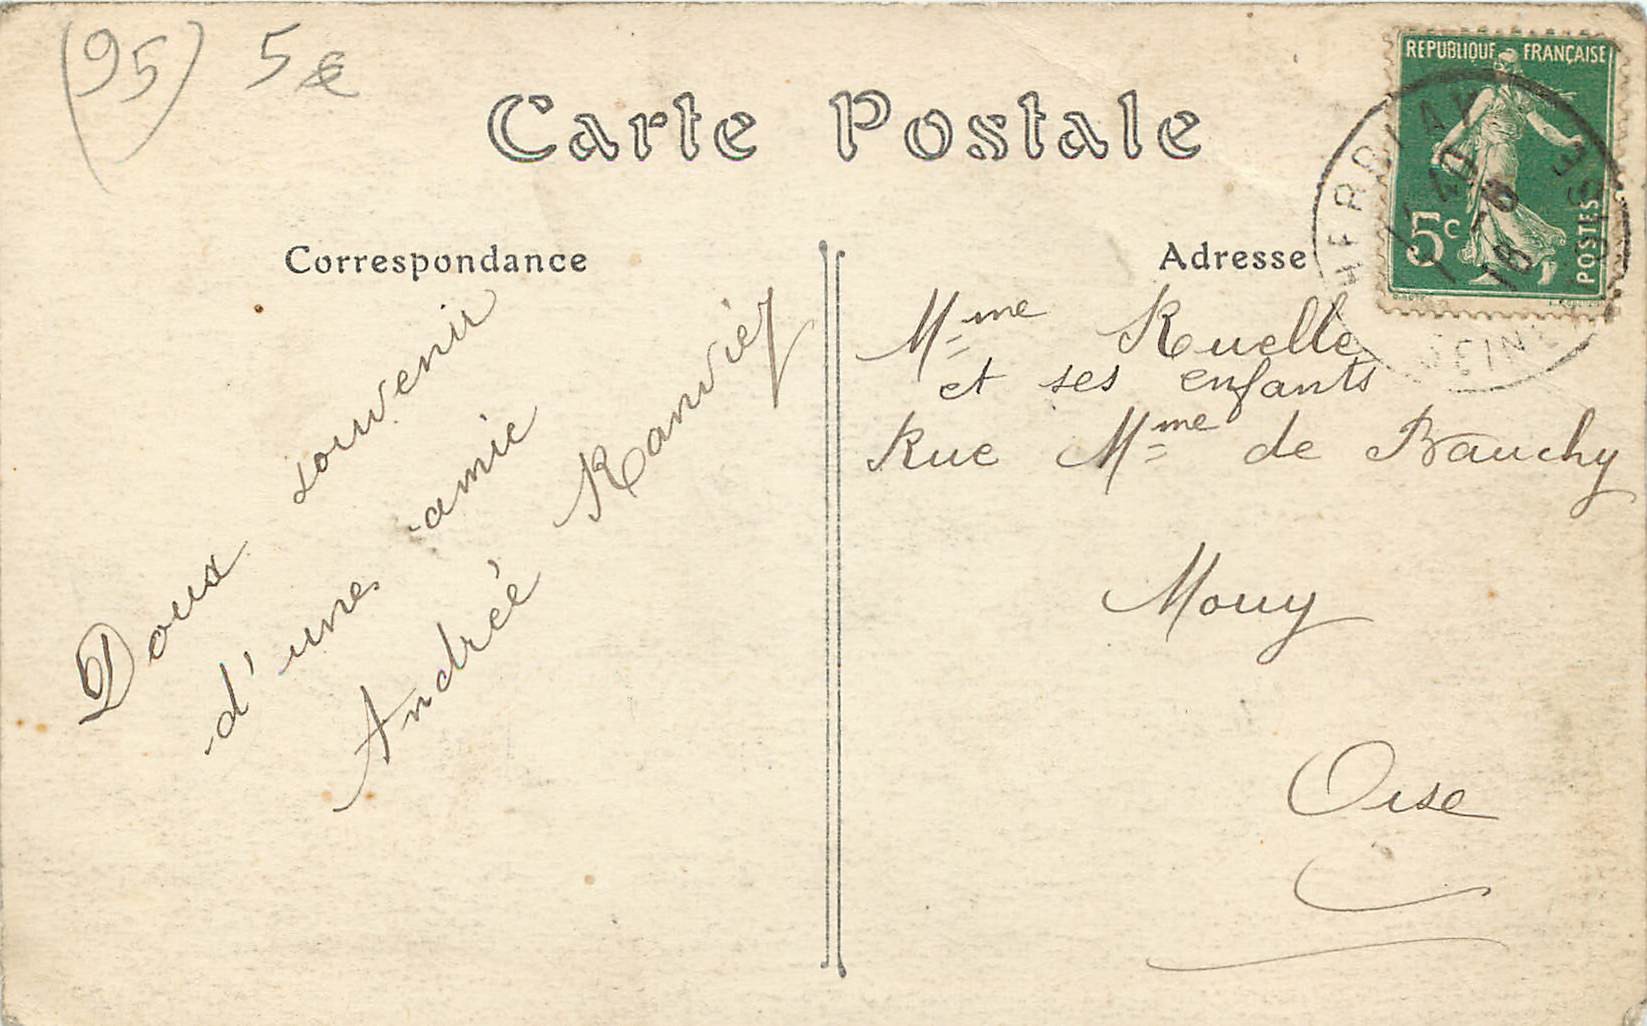 (95) 5€
Carte Postale
REPUBLIQUE FRANÇAISE
5c
POSTES
HERBLAY
11 40
18 - 8
SEINE
OISE
Correspondance
Doux souvenir
d'une amie
Andrée Ranviéz
Adresse
Mme Ruelle
et ses enfants
Rue Mme de Bauchy
Mouy
Oise